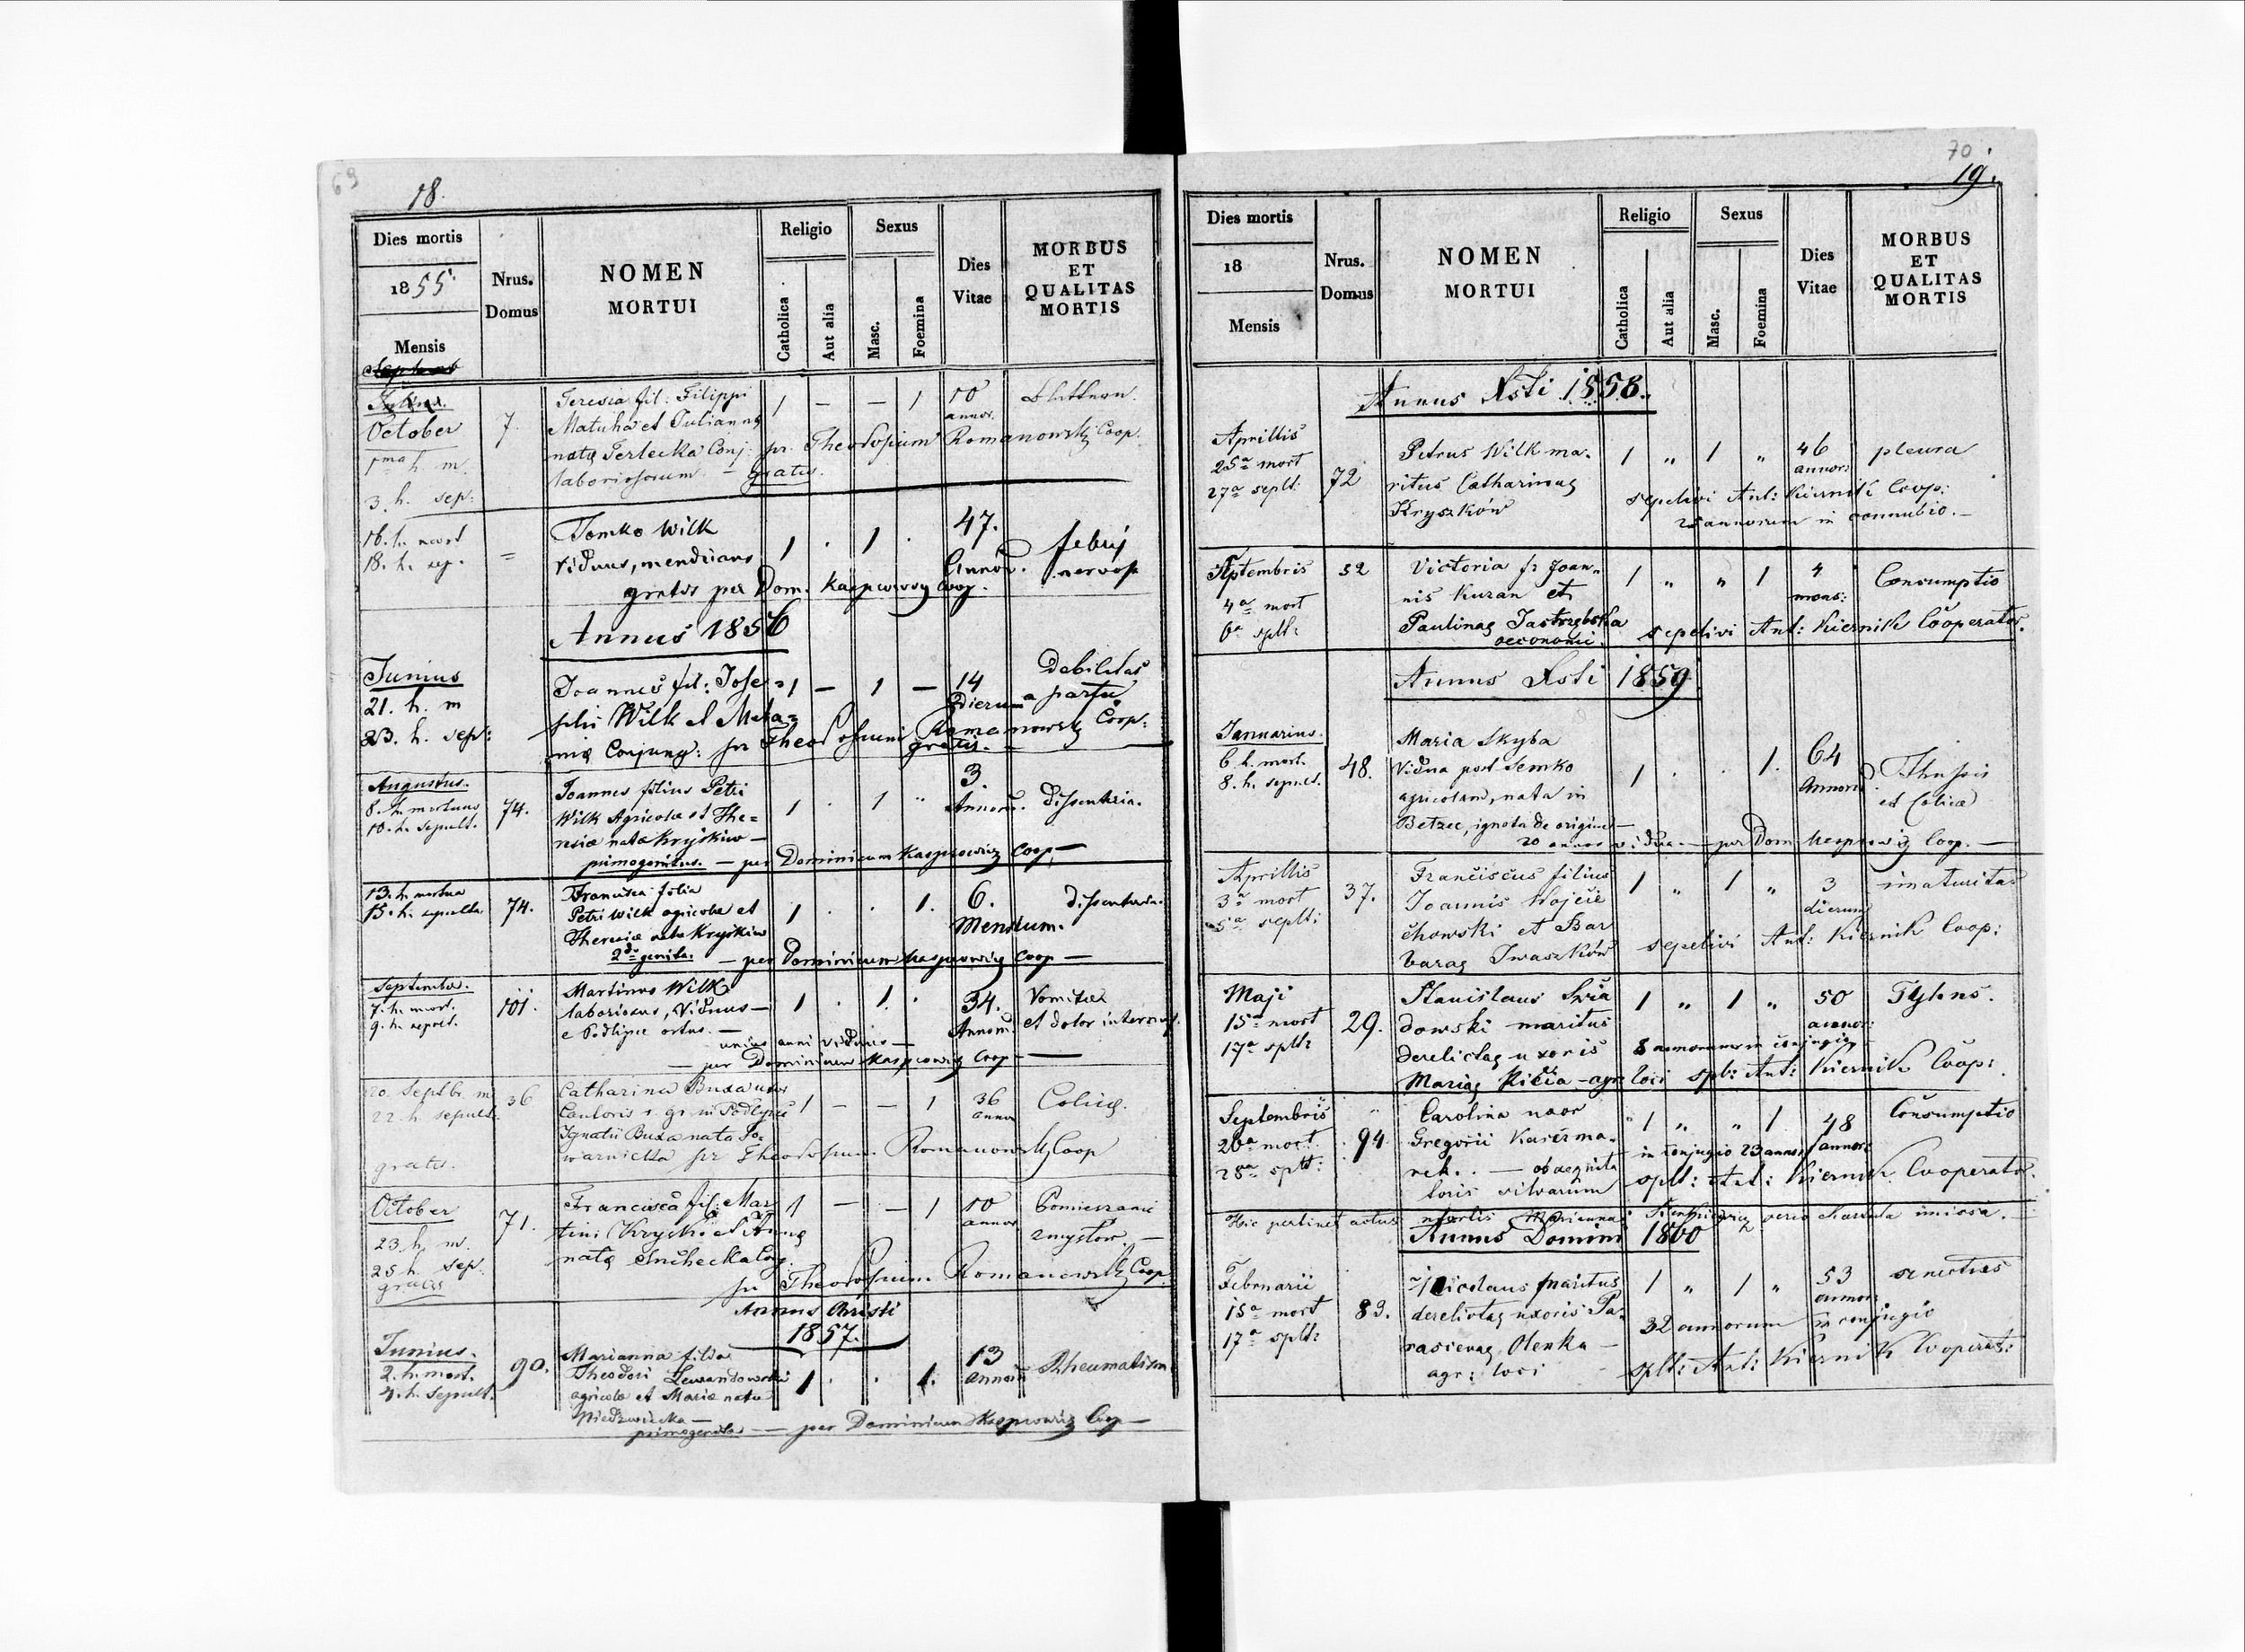 69
18.
Dies mortis
1855.
Mensis
Nrus.
Domus
NOMEN
MORTUI
Religio
Catholica
Aut alia
Sexus
Masc.
Foemina
Dies
Vitae
MORBUS
ET
QUALITAS
MORTIS
October
h. m.
3. h. sep:
7.
Teresia fil: Filippi
Matuha et Julianna
natę Terlecka Conj:
laboriosorum – gratis.
pr. Theodosium Romanowski Coop.
1 – – 1
10
annor.
16. h. mort
18. h. sep.
=
Tomko Wilk
viduus, mendicans
gratis per Dom. Kasprowicz Coop.
1 . 1 .
47.
Annor.
febris
nervos.
Annus 1856
Junius
21. h. m
23. h. sep:
Joannes fil: Jose=
phi Wilk et Mela=
nię Conjung: pr Theodosium Romanowski Coop:
gratis. –
1 – 1 –
14
Dierum
Debilitas
a partu
Augustus.
8. h. mortuus
10. h. sepult.
74.
Joannes filius Petri
Wilk Agricolae et The=
resiæ nata Kryśkiw –
primogenitus. – per Dominicum Kasprowicz Coop –
1 . 1 "
3.
Annor.
Dissenteria.
13. h. mortua
15. h. sepulta
74.
Francisca filia
Petri Wilk agricolæ et
Theresiæ nata Kryśkiw
2da genita. – per Dominicum Kasprowicz Coop –
1 . . 1.
6.
Mensium.
dissenteria.
September.
7. h. mort.
9. h. sepult.
101.
Martinus Wilk
laboriosus, Viduus –
e Podlipce ortus. –
unius anni viduus –
– per Dominicum Kasprowicz Coop –
1 . 1. .
34.
Annor.
Vomitus
et dolor intern.
20. Septbr. m
22. h. sepult.
gratis.
36
Catharina Buxa uxor
Cantoris r. gr. in Podlypce
Ignatii Buxa nata Po=
warnicka pr Theodosium Romanowski Coop
1 – – 1
36
annor
Colica.
October
23 h. m.
25 h. sep.
gratis
71.
Francisca fil: Mar
tini Kryśki et Anna
natę
pr Theodosium Romanowski Coop.
1 – – 1
10
annor
Pomieszanie
zmysłow. –
Annus Christi
1857.
Junius.
2. h. mort.
4. h. Sepult.
90.
Marianna filia
Theodori Lewandowski
agricolæ et Mariæ nata
Niedzwiecka –
primogenita – per Dominicum Kasprowicz Coop –
1 . . 1.
13
annor
Rheumatism
70
19.
Dies mortis
18
Mensis
Nrus.
Domus
NOMEN
MORTUI
Religio
Catholica
Aut alia
Sexus
Masc.
Foemina
Dies
Vitae
MORBUS
ET
QUALITAS
MORTIS
Annus Xsti 1858.
Aprillis
25a mort
27a seplt:
72
Petrus Wilk ma-
ritus Catharinae
Kryszków
1 " 1 "
46
annor:
pleura
sepelivi Ant: Kiernik Coop:
25 annorum in connubio. –
Septembris
4a mort
6a splt:
32
Victoria fr Joan-
nis Kuran et
Paulinae Jastrzębska
oeconomi.
1 " " 1
4
mens:
Consumptio
sepelivi Ant: Kiernik Cooperator.
Annus Xsti 1859
Januarius.
6. h. mort.
8. h. sepult.
48.
Maria Skyba
Vidua post Semko
agricolam, nata in
Betzec, ignota de origine –
20 annos vidua. – per Dom Kasprowicz Coop. –
1 . . 1.
64
Annor.
Thusis
et Colica
Aprillis
3a mort
5a seplt:
37.
Franciscus filius
Joannis Wojcie
chowski et Bar
barae Iwaszków
1 " 1 "
3
dierum
imaturitas
sepelivi Ant: Kiernik Coop:
Maji
15a mort
17a splt:
29.
Stanislaus Swia
dowski maritus
derelictae uxoris
Mariae Kicia – agr loci splt: Ant: Kiernik Coop:
1 " 1 "
50
annor:
Typhus.
8 annorum in conjugio
Septembris
26a mort.
28a splt:
94
Carolina uxor
Gregorii Karczma-
rek. – ob
loris silvarum
1 " " 1
48
annor:
Consumptio
in conjugio 23 annor.
splt: Ant: Kiernik Cooperator.
Hic pertinet actus mortis Marianna
Annus Domini 1860
Februarii
15a mort
17a splt:
83.
Nicolaus maritus
derelictae uxoris Pa-
rasienae Olenka –
agr: loci
1 " 1 "
53
annor:
senectus
32 annorum in conjugio
splt: Ant: Kiernik Cooperat: